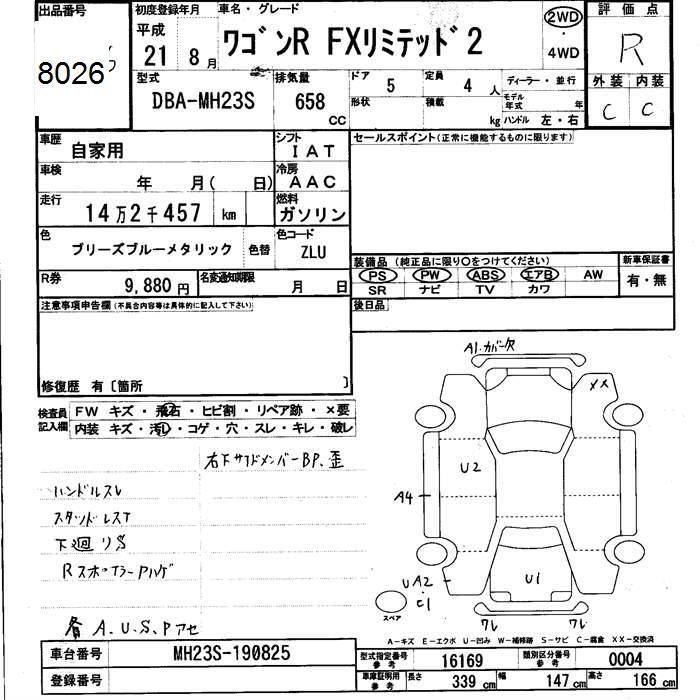 出品番号
8026
初度登録年月
平成
21 8月
車名・グレード
ワゴンR FXリミテッド2
2WD
・
4WD
評価点
R
外装 内装
C C
型式
DBA-MH23S
排気量
658
CC
ドア
5
定員
4 人
ディーラー・並行
形状
積載
kg
モデル年式 年
ハンドル 左・右
車歴
自家用
シフト
IAT
車検
年 月( 日)
冷房
AAC
走行
14万2千457 km
燃料
ガソリン
色
ブリーズブルーメタリック
色替
色コード
ZLU
R券
9,880円
名変通知期限
月 日
セールスポイント(正常に機能するものに限ります)
装備品(純正品に限り○をつけてください)
新車保証書
PS PW ABS エアB AW
SR ナビ TV カワ
有・無
後日品
注意事項申告欄(不具合内容等は具体的に記入して下さい)
修復歴 有〔箇所 〕
検査員記入欄
FW キズ・飛石・ヒビ割・リペア跡・×要
内装 キズ・汚れ・コゲ・穴・スレ・キレ・破レ
右下サイドメンバーBP、歪
ハンドルスレ
下廻りS
各A.U.S.Pアセ
A1.カバー欠
XX
U2
A4
UA2
C1
U1
ワレ ワレ
スペア
A-キズ E-エクボ U-凹み W-補修跡 S-サビ C-腐食 XX-交換済
車台番号
MH23S-190825
登録番号
型式指定番号
参考
16169
類別区分番号
参考
0004
車庫証明用
参考
長さ 339 cm
幅 147 cm
高さ 166 cm